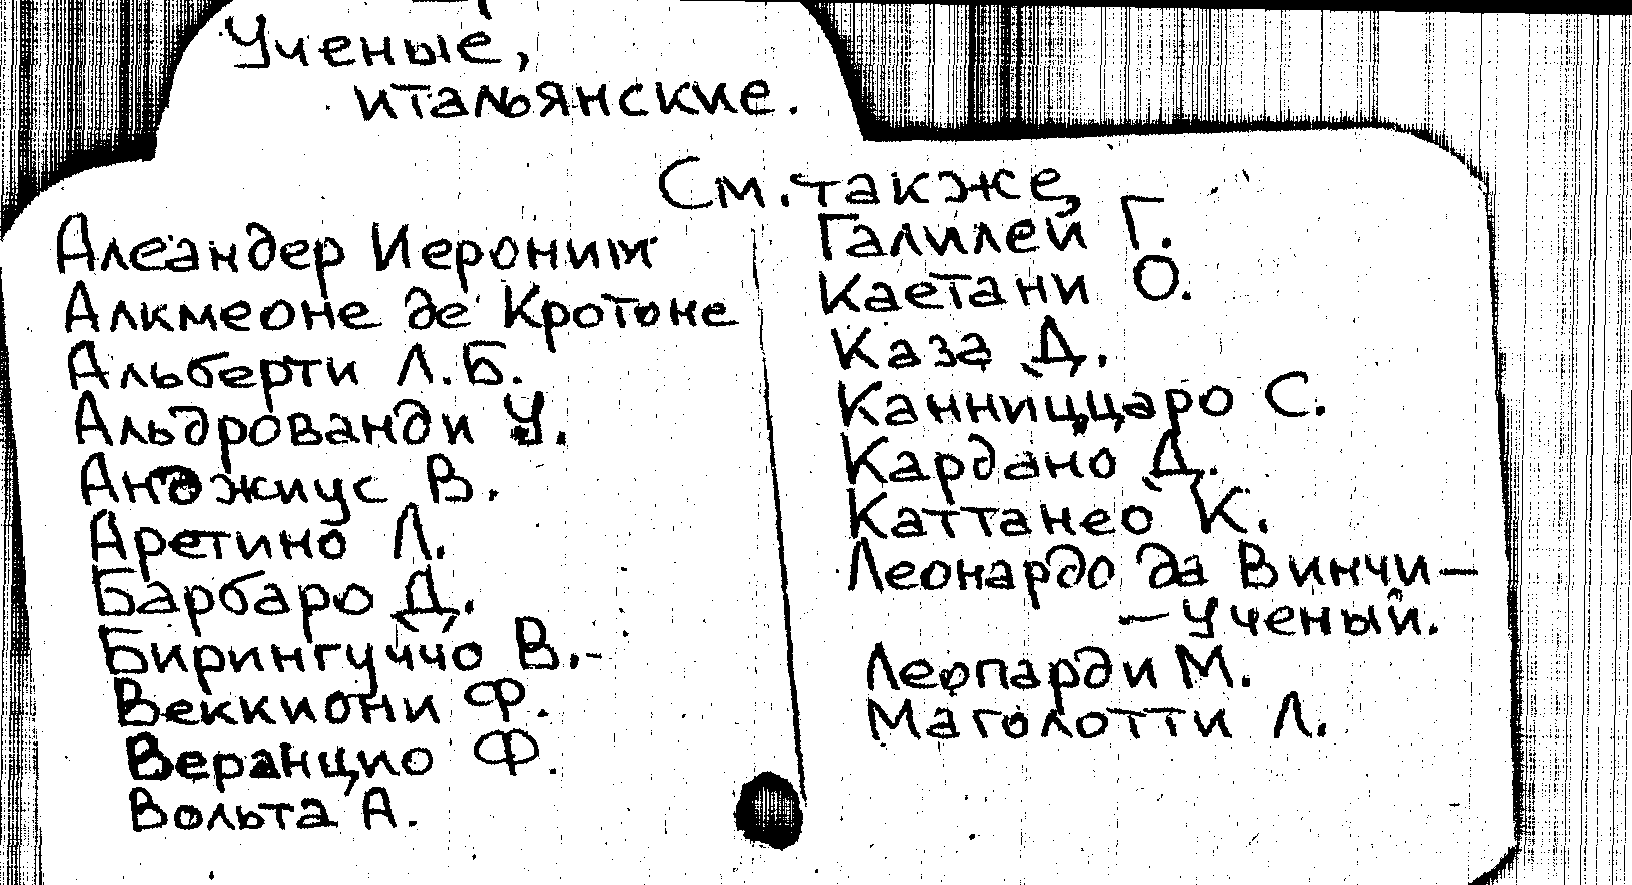 Ученые,
итальянские.
См. также
Алеандер Иероним
Алкмеоне де Кротоне
Альберти Л.Б.
Альдрованди У.
Анджиус В.
Аретино Л.
Барбаро Д.
Бирингуччо В.-
Веккиони Ф.
Веранцио Ф.
Вольта А.
Галилей Г.
Каетани О.
Каза Д.
Канниццаро С.
Кардано Д.
Каттанео К.
Леонардо да Винчи —
— ученый.
Леопарди М.
Маголотти Л.